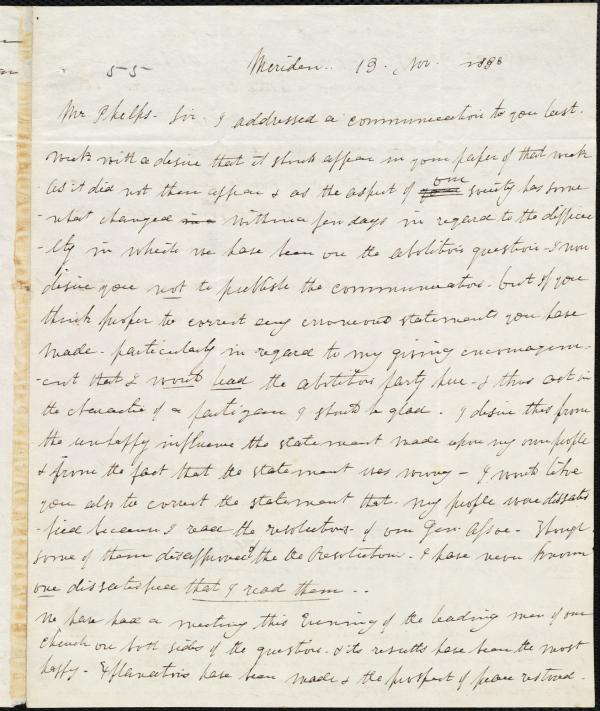 55
Meriden. 13. Nov. 1836
Mr Phelps - Sir. I addressed a communication to you last.
week with a desire that it should appear in your paper of that week
- As it did not then appear & as the aspect of our society has some
-what changed in a within a few days in regard to the difficu
-lty in which we have been on the abolition question - I now
desire you not to publish the communication. but if you
think proper to correct any erroneous statements you have
made - particularly in regard to my giving encouragem-
-ent that I would lead the abolition party here - & thus act in
the character of a partizan I should be glad. I desire this from
the unhappy influence the statement made upon my own people
& from the fact that the statement was wrong - I would like
you also to correct the statement that my people were dissatis
-fied because I read the resolutions of our Gen. Assoc - Though
some of them disapproved of the Resolutions. I have never known
one dissatisfied that I read them - -
We have had a meeting this Evening of the leading men of our
church on both sides of the question. & its results have been the most
happy - Explanations have been made & the prospect of peace restored -